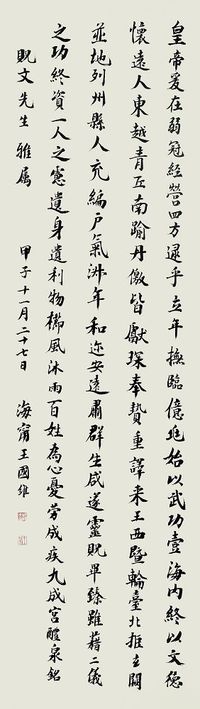 皇帝爰在弱冠經營四方逮乎立年撫臨億兆始以武功壹海內終以文德
懷遠人東越青丘南踰丹徼皆獻琛奉贄重譯來王西暨輪臺北拒玄闕
並地列州縣人充編戶氣淑年和迩安遠肅群生咸遂靈貺畢臻雖藉二儀
之功終資一人之慮遺身利物櫛風沐雨百姓為心憂勞成疾九成宮醴泉銘
貺文先生 雅屬 甲子十一月二十七日 海甯王國維